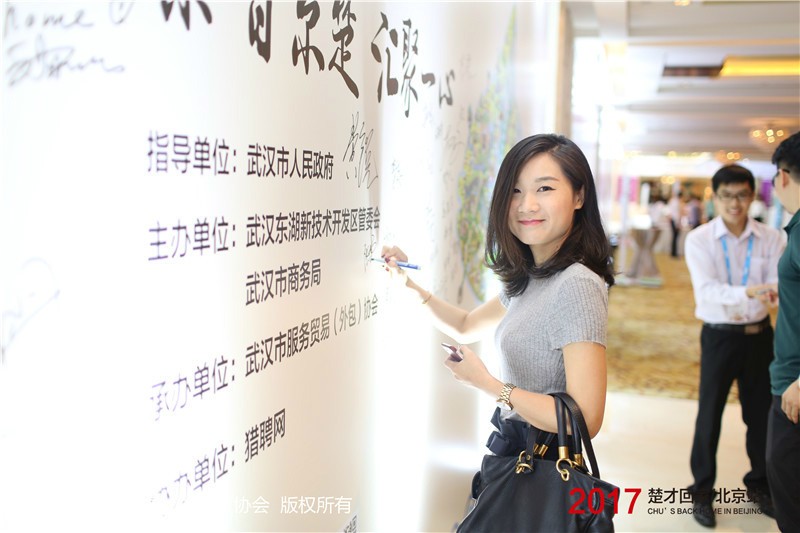 name
百京楚 汇聚一心
指导单位：武汉市人民政府
主办单位：武汉东湖新技术开发区管委会
武汉市商务局
承办单位：武汉市服务贸易（外包）协会
办单位：猎聘网
协会 版权所有
2017 楚才回 北京
CHU'S BACK HOME IN BEIJING